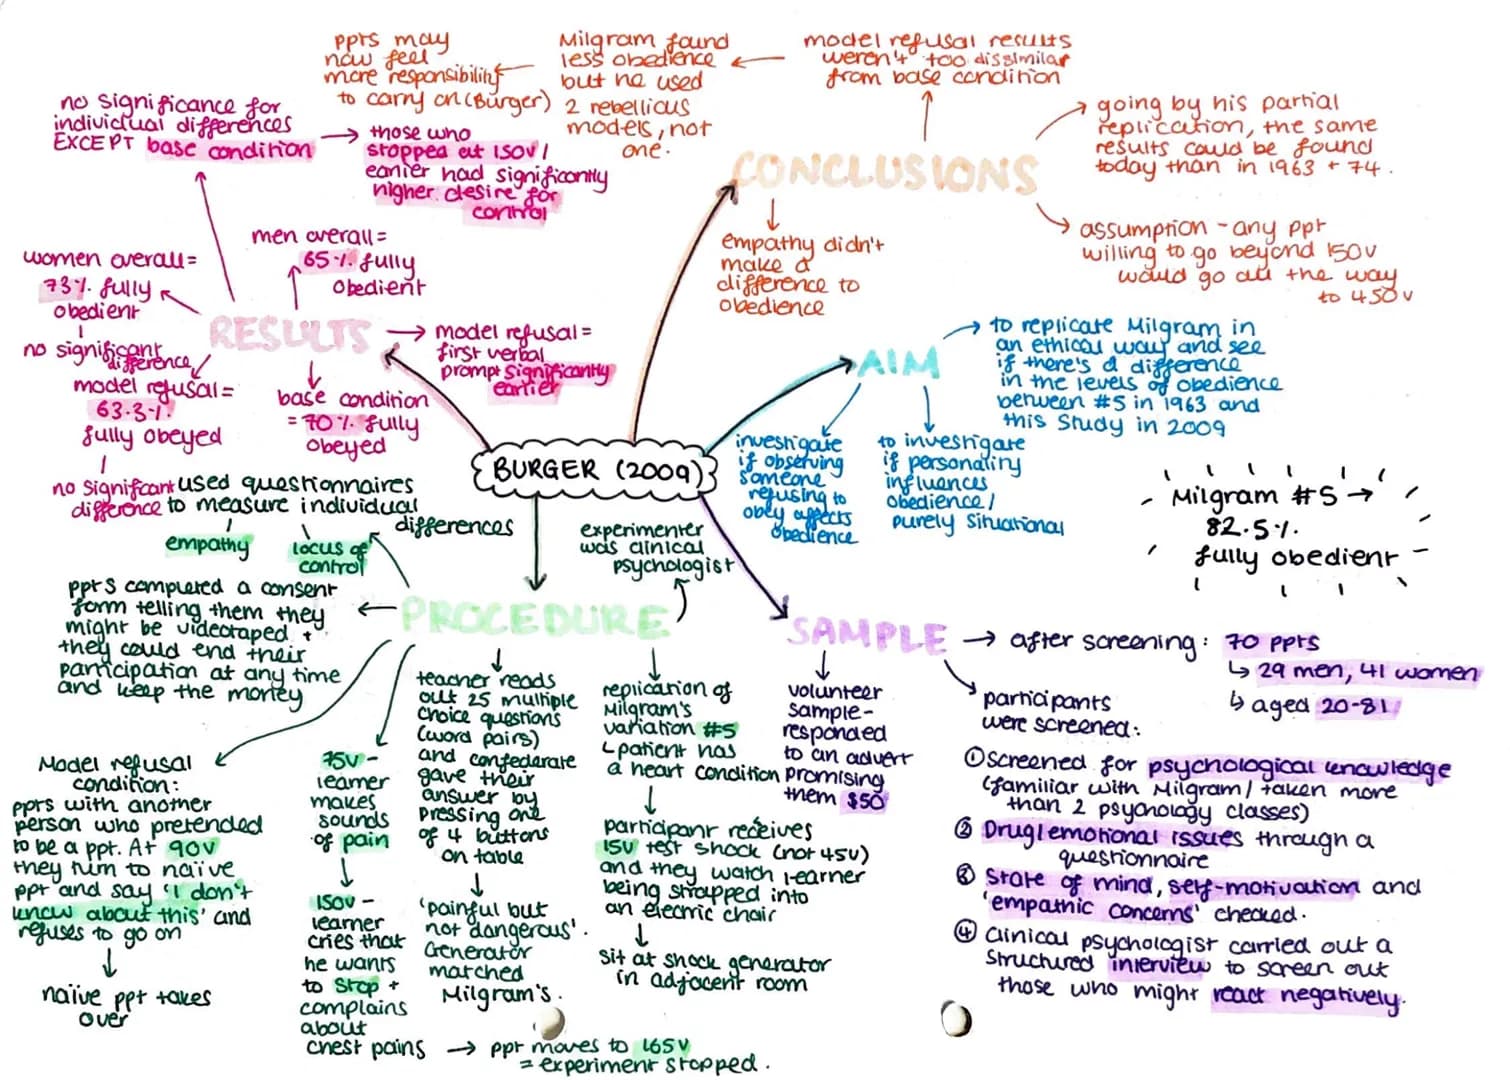 BURGER (2009)
CONCLUSIONS
model refusal results
weren't too dissimilar
from base condition
Milgram found
less obedience
but he used
2 rebellious
models, not
one.
ppts may
now feel
more responsibility
to carry on (Burger)
going by his partial
replication, the same
results could be found
today than in 1963 + 74.
assumption - any ppt
willing to go beyond 150v
would go all the way
to 450v
empathy didn't
make a
difference to
obedience
AIM
to replicate Milgram in
an ethical way and see
if there's a difference
in the levels of obedience
between #5 in 1963 and
this study in 2009
investigate
if observing
someone
refusing to
obey affects
obedience
to investigate
if personality
influences
obedience /
purely situational
Milgram #5 →
82.5%
fully obedient
RESULTS
no significance for
individual differences
EXCEPT base condition
those who
stopped at 150v /
earlier had significantly
higher desire for
control
men overall =
65% fully
obedient
women overall =
73% fully
obedient
no significant
difference
model refusal =
63.3%
fully obeyed
no significant
difference
base condition
= 70% fully
obeyed
model refusal =
first verbal
prompt significantly
earlier
PROCEDURE
used questionnaires
to measure individual
differences
empathy
locus of
control
experimenter
was clinical
psychologist
ppts completed a consent
form telling them they
might be videotaped +
they could end their
participation at any time
and keep the money
Model refusal
condition:
ppts with another
person who pretended
to be a ppt. At 90v
they turn to naïve
ppt and say 'I don't
know about this' and
refuses to go on
naïve ppt takes
over
75v -
learner
makes
sounds
of pain
150v -
learner
cries that
he wants
to stop +
complains
about
chest pains → ppt moves to 165v
= experiment stopped.
teacher reads
out 25 multiple
choice questions
(word pairs)
and confederate
gave their
answer by
pressing one
of 4 buttons
on table
'painful but
not dangerous'.
Generator
matched
Milgram's.
replication of
Milgram's
variation #5
↳ patient has
a heart condition
participant receives
15v test shock (not 45v)
and they watch learner
being strapped into
an electric chair
sit at shock generator
in adjacent room
SAMPLE
volunteer
sample -
responded
to an advert
promising
them $50
after screening: 70 ppts
↳ 29 men, 41 women
↳ aged 20-81
participants
were screened:
① screened for psychological knowledge
(familiar with Milgram / taken more
than 2 psychology classes)
② Drug/emotional issues through a
questionnaire
③ state of mind, self-motivation and
'empathic concerns' checked.
④ Clinical psychologist carried out a
structured interview to screen out
those who might react negatively.